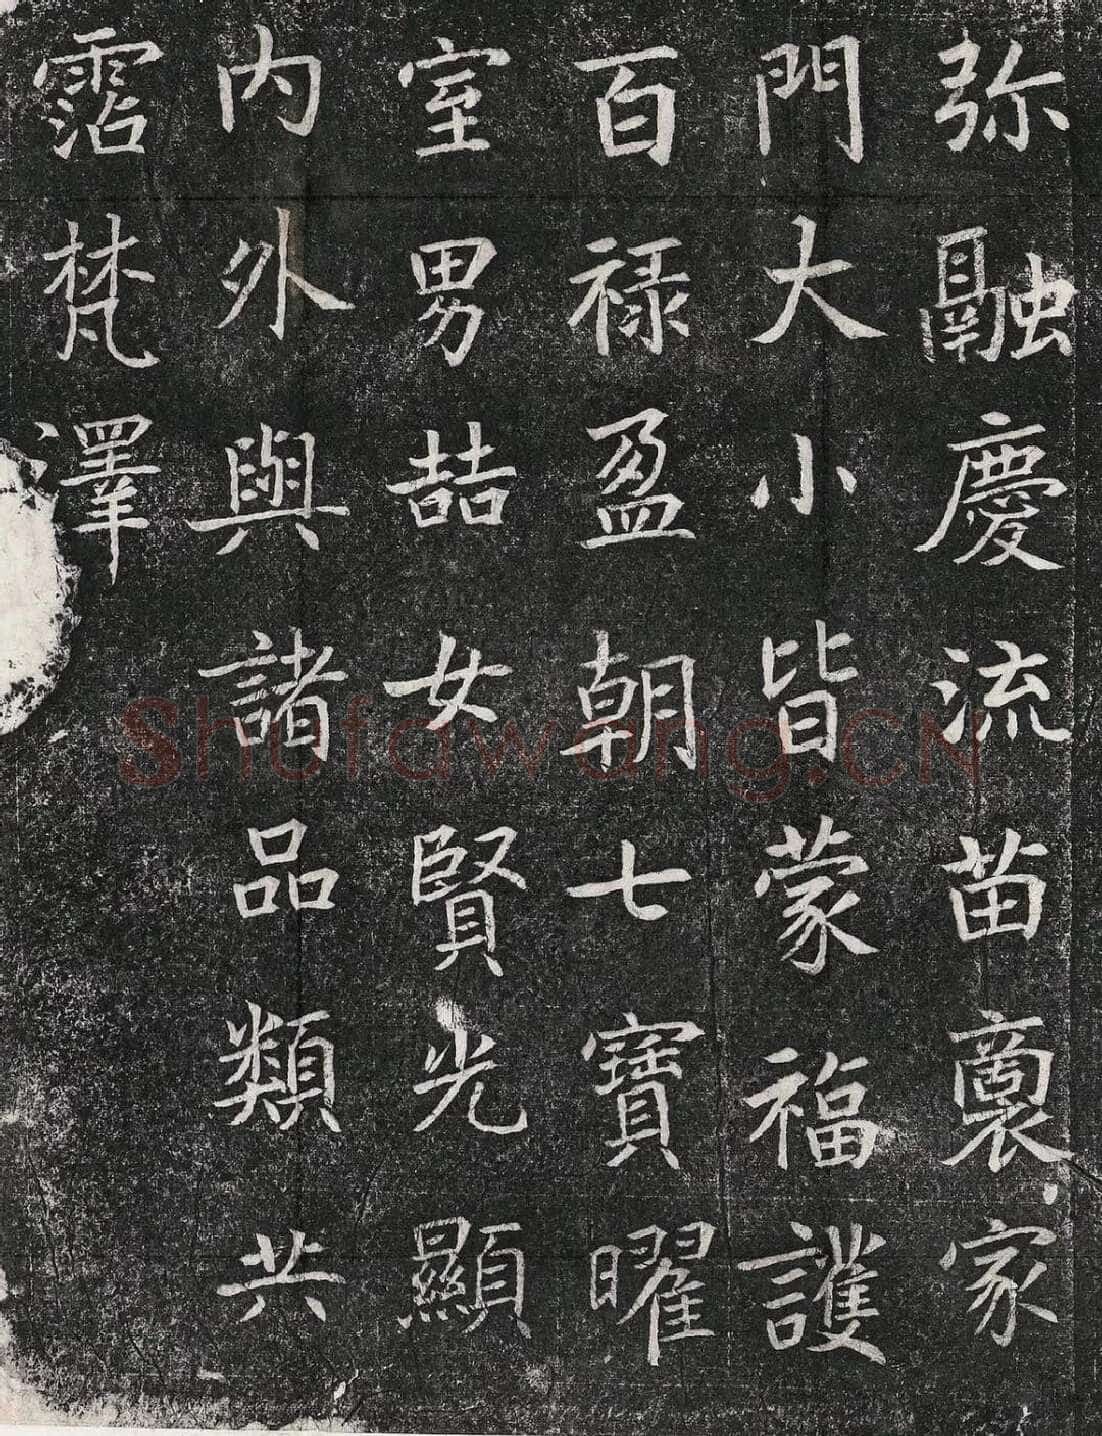 弥融慶流苗裔家
門大小皆蒙福護
百禄盈朝七寶曜
室男喆女賢光顯
内外與諸品類共
霑梵澤
Shufawang.CN